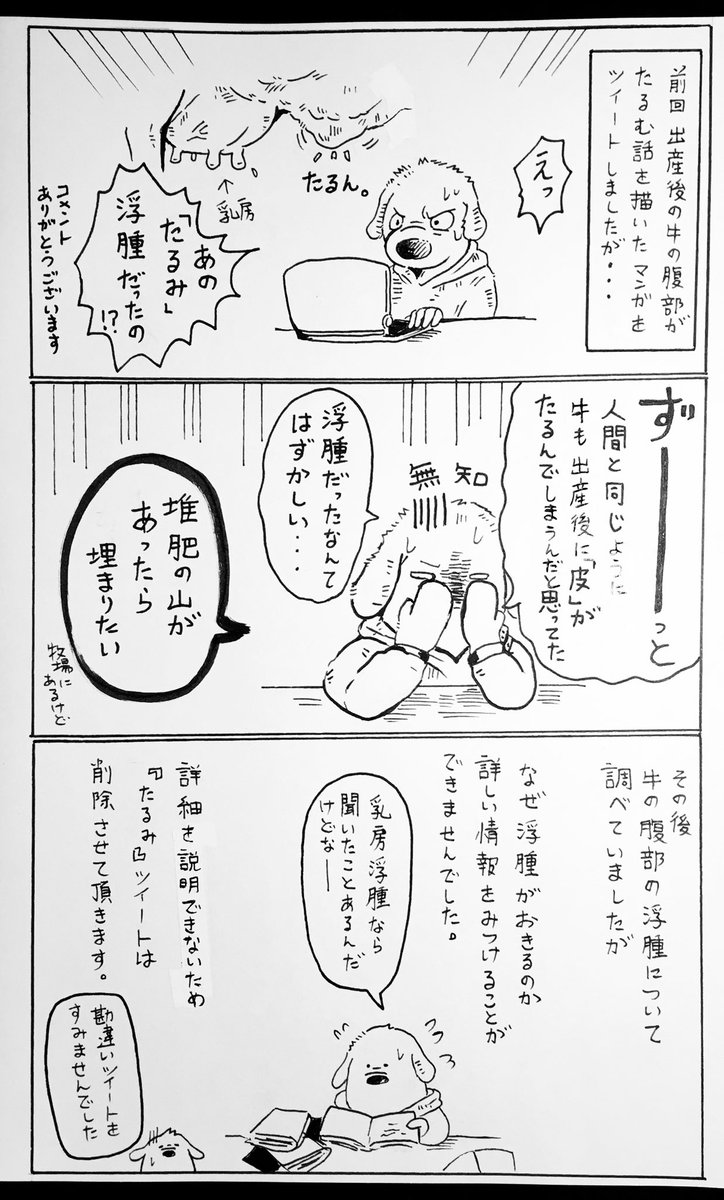 前回 出産後の牛の腹部が
たるむ話を描いた マンガを
ツイートしましたが・・・
えっ
たるん。
↑
乳房
あの
「たるみ」
浮腫だったの
!?
コメント
ありがとうございます
ずーーーっと
人間と同じように
牛も出産後に「皮」が
たるんでしまうんだと思ってた
無知
浮腫だったなんて
はずかしい・・・
堆肥の山が
あったら
埋まりたい
牧場に
あるけど
その後
牛の腹部の浮腫について
調べていましたが
なぜ浮腫がおきるのか
詳しい情報をみつけることが
できませんでした。
乳房浮腫なら
聞いたことあるんだ
けどなー
詳細を説明できないため
『たるみ』ツイートは
削除させて頂きます。
勘違いツイートを
すみませんでした